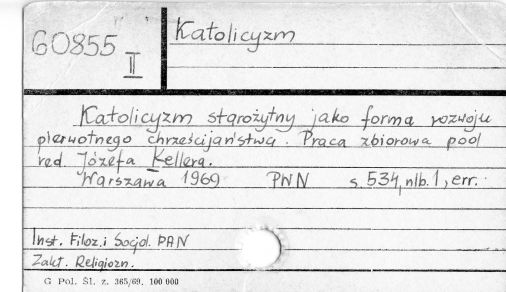 60855
II
Katolicyzm
Katolicyzm starożytny jako forma rozwoju
pierwotnego chrześcijaństwa. Praca zbiorowa pod
red. Józefa Kellera.
Warszawa 1969 PWN s. 534, nlb. 1, err.
Inst. Filoz. i Socjol. PAN
Zakł. Religiozn.
G Pol. Śl. z. 365/69. 100 000